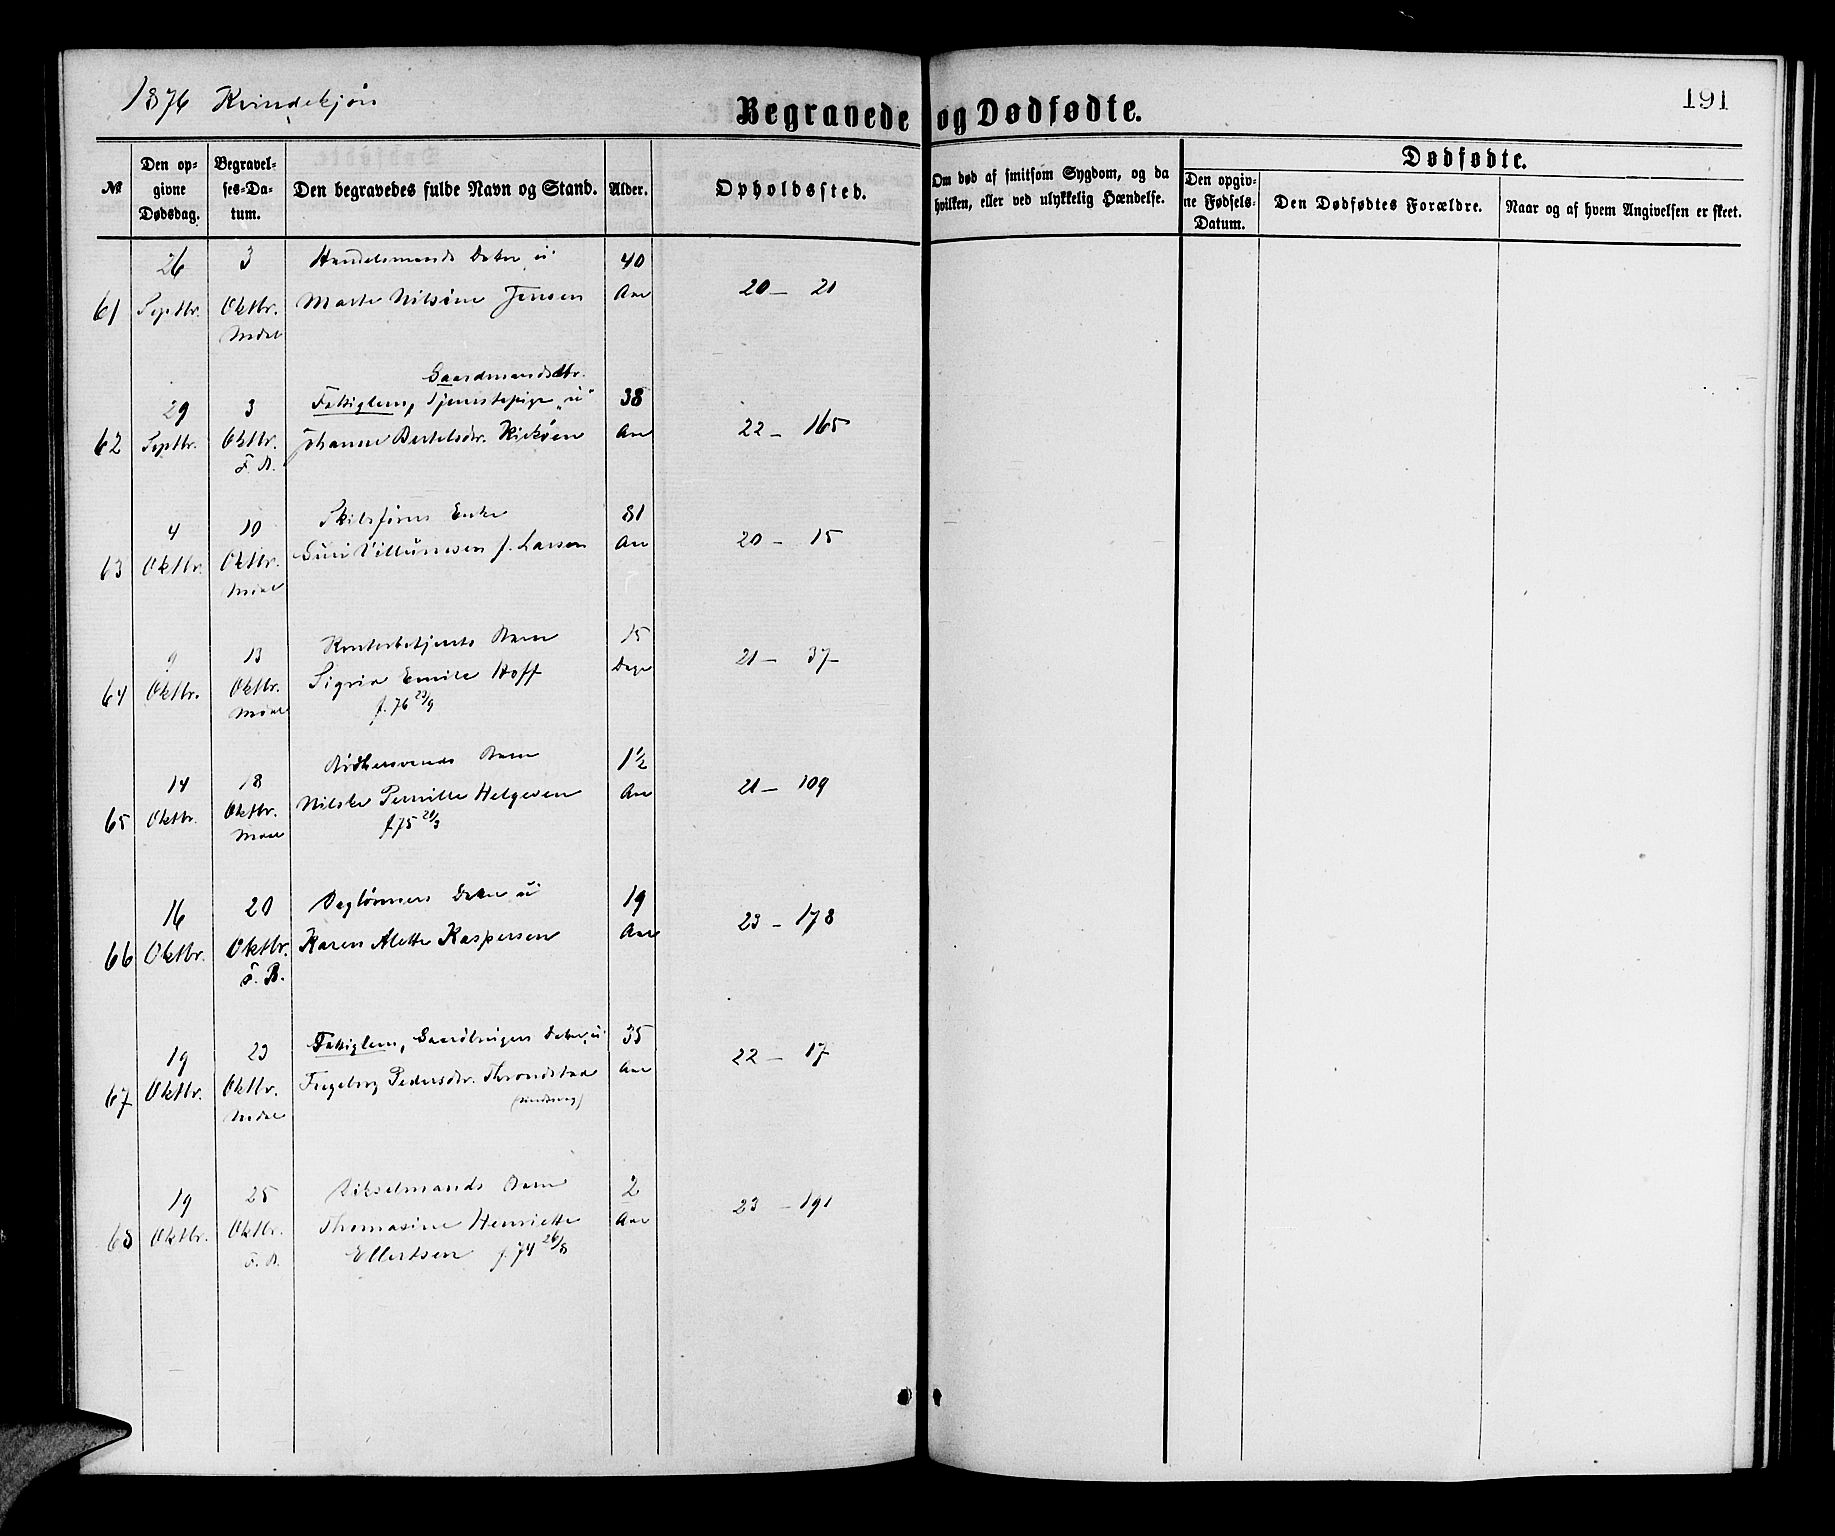 1876 Kvindekjøn
Begravede og Dødfødte.
191
№
Den opgivne Dødsdag.
Begravelses-Datum.
Den begravedes fulde Navn og Stand.
Alder.
Opholdssted.
Om død af smitsom Sygdom, og da hvilken, eller ved ulykkelig Hændelse.
Dødfødte.
Den opgivne Fødsels-Datum.
Den Dødfødtes Forældre.
Naar og af hvem Angivelsen er skeet.
26 3 Handelsmands Datter u 40
61 Septbr. Oktbr. Marte Nilsine Jensen Aar 20 - 21
Gaardmandsdtr.
29 3 Fattiglem, Tjenestepige "u" 38
62 Septbr. Oktbr. Johanne Bertelsdtr. Aar 22 - 165
F. A.
4 10 Skibsførers Enke 81
63 Oktbr. Oktbr. Siri Villumsen f. Larsen Aar 20 - 15
9 13 Kontorbetjents Barn 15
64 Oktbr. Oktbr. Sigrid Emilie Hoff Dage 21 - 37
f. 76 23/9
14 18 Bødkersvends Barn 1 1/2
65 Oktbr. Oktbr. Nilske Pernille Helgesen Aar 21 - 109
f. 75 21/3
16 20 Daglønners Datter u 19
66 Oktbr. Oktbr. Karen Alette Kaspersen Aar 23 - 178
F. B.
19 23 Fattiglem, Gaardbrugers Datter u 35
67 Oktbr. Oktbr. Ingeborg Pedersdtr. Throndstad Aar 22 - 17
(sindssvag)
19 25 Barn 2
68 Oktbr. Oktbr. Thomasine Henriette Aar 23 - 191
F. A. Ellertsen f. 74 26/8